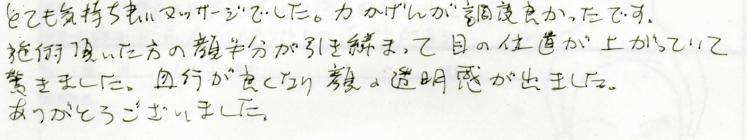 とても気持ち良いマッサージでした。力かげんが調度良かったです。
施術頂いた方の顔半分が引き締まって目の位置が上がっていて
驚きました。血行が良くなり顔の透明感が出ました。
ありがとうございました。